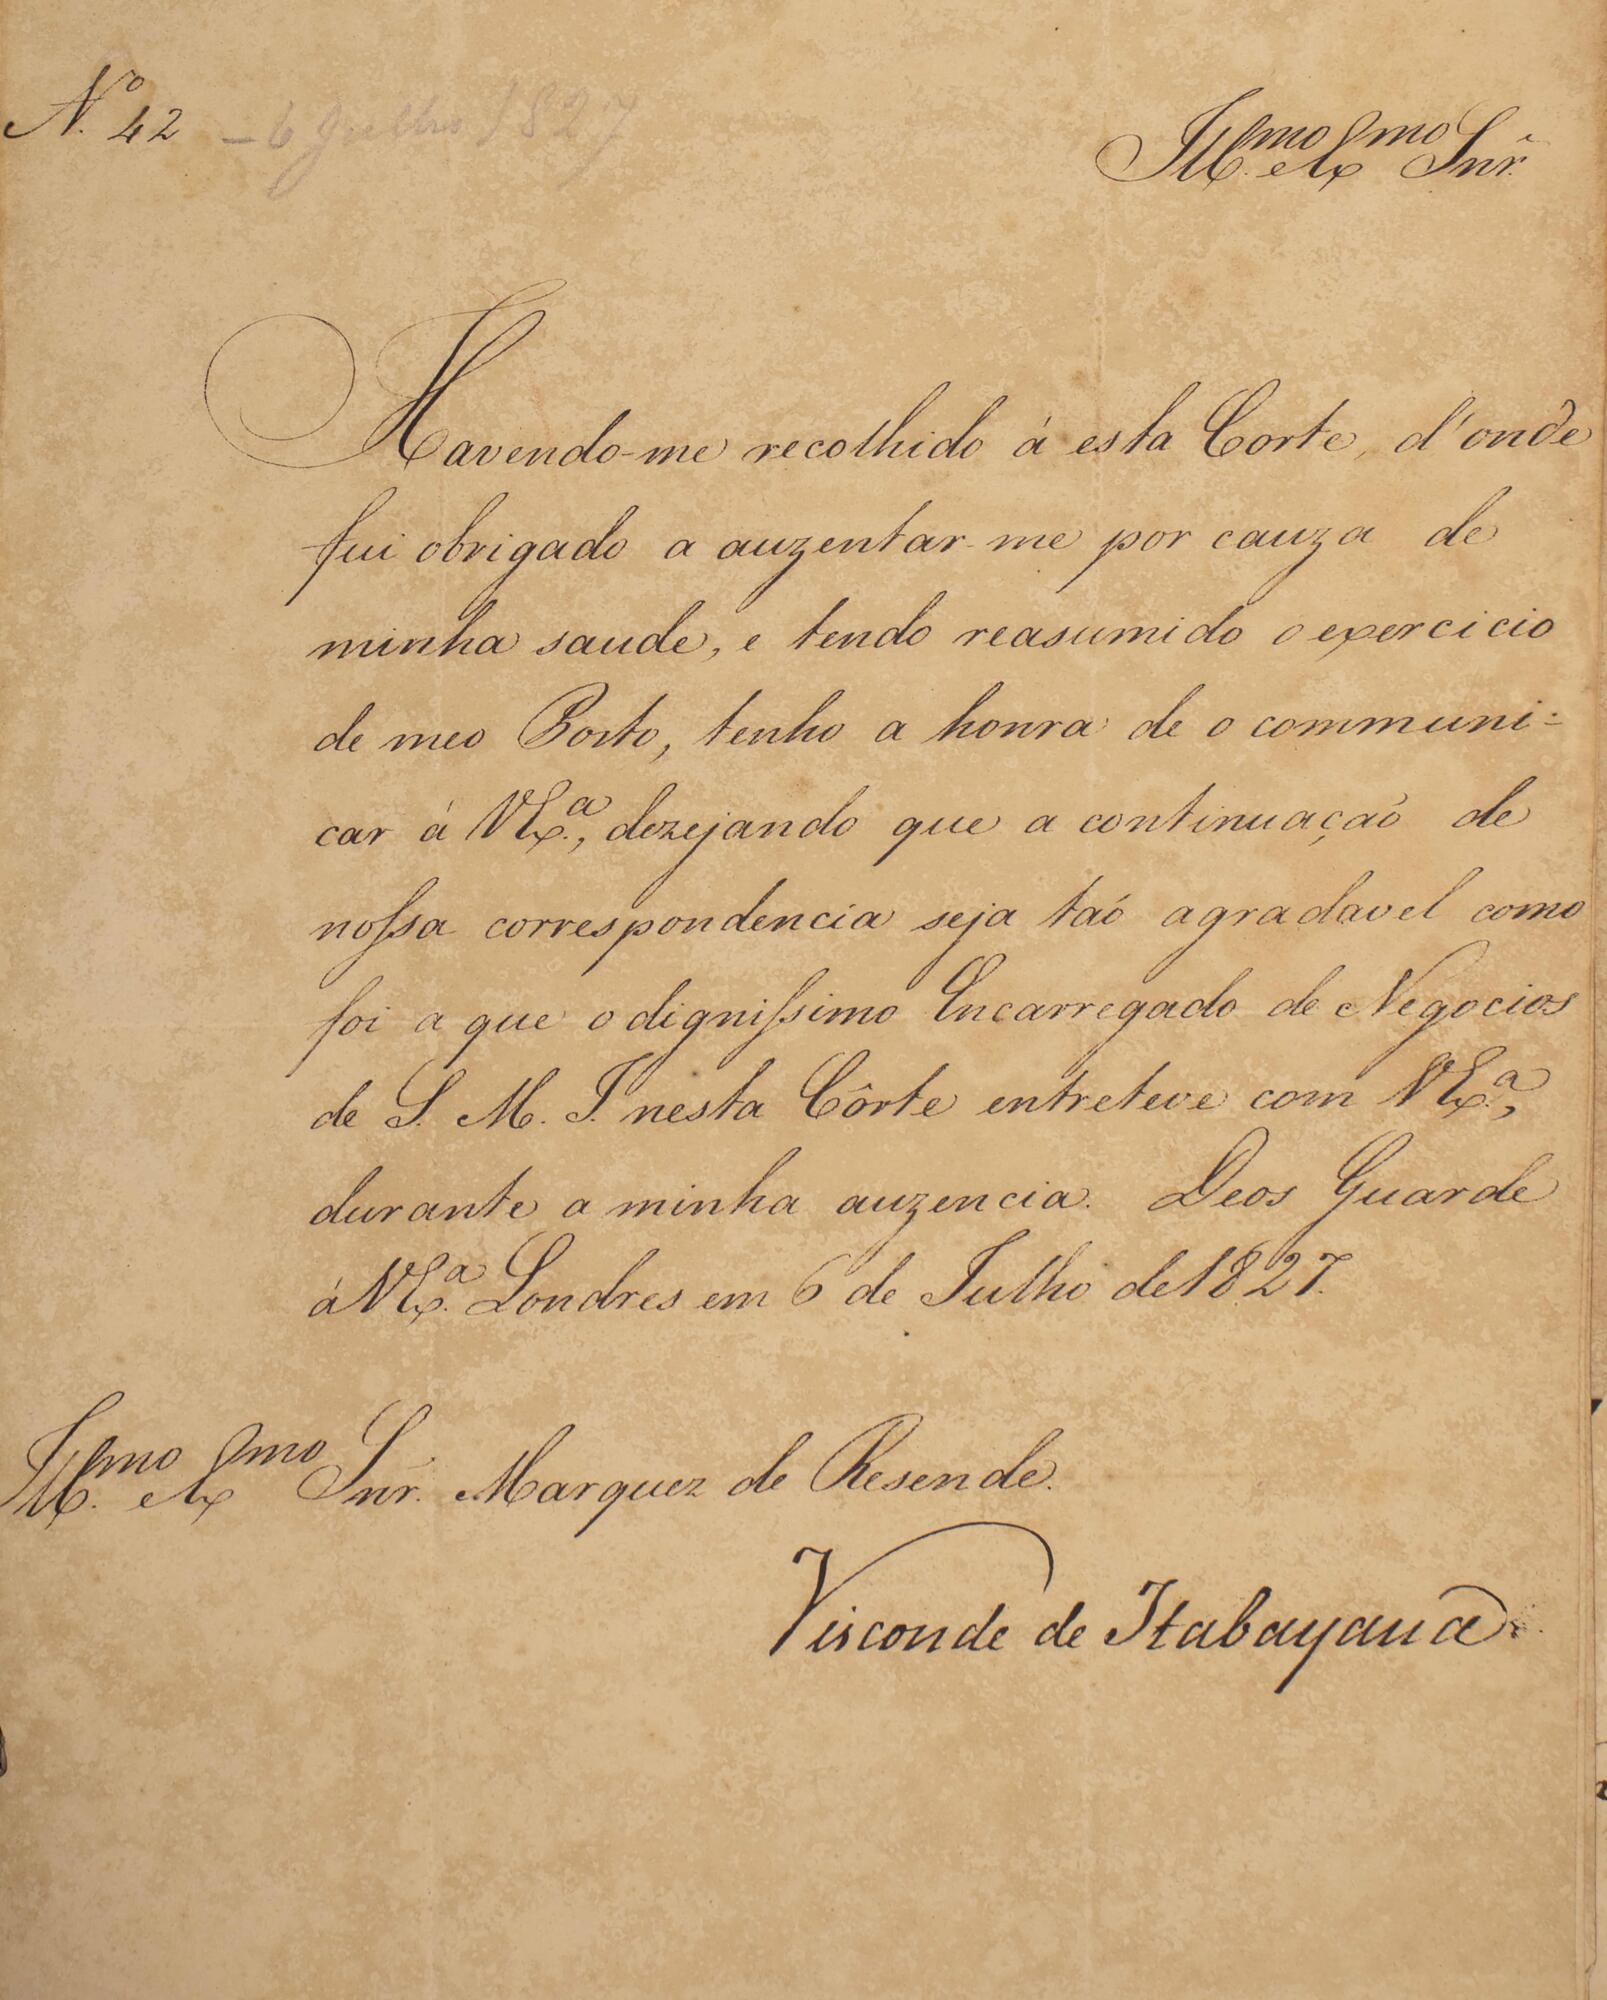 Nº 42 - 6 Julho 1827
Illmo. e Exmo Snr.
Havendo-me recolhido á esta Corte, d'onde
fui obrigado a auzentar-me por cauza de
minha saude, e tendo reasumido o exercicio
de meo Posto, tenho a honra de o communi-
car á VExa., dezejando que a continuaçaõ de
nossa correspondencia seja taõ agradavel como
foi a que o dignissimo Encarregado de Negocios
de S. M. I. nesta Côrte entreteve com VExa.,
durante a minha auzencia. Deos Guarde
á VExa. Londres em 6 de Julho de 1827.
Illmo. e Exmo Snr. Marquez de Resende.
Visconde de Itabayana